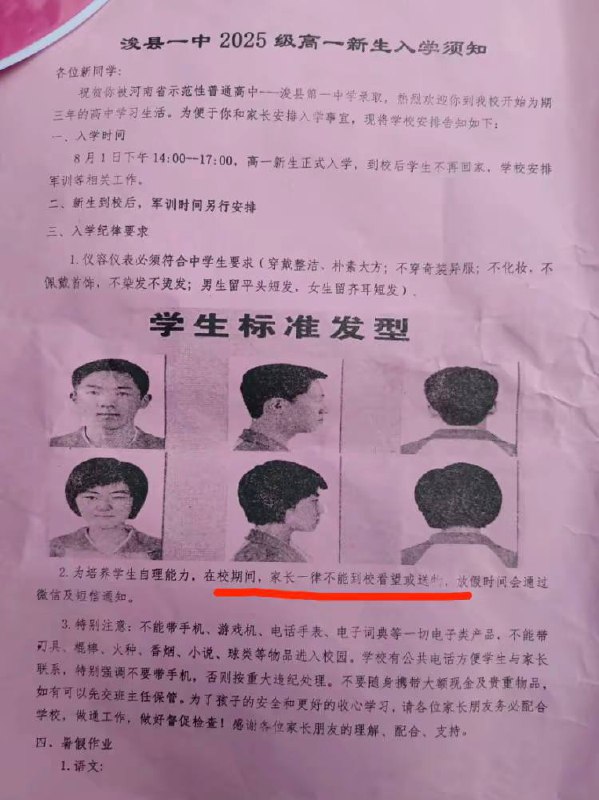 浚县一中 2025 级高一新生入学须知
各位新同学:
祝贺你被河南省示范性普通高中---浚县第一中学录取，热烈欢迎你到我校开始为期
三年的高中学习生活。为便于你和家长安排入学事宜，现将学校安排告知如下:
一、入学时间
8月1日下午 14:00--17:00，高一新生正式入学，到校后学生不再回家，学校安排
军训等相关工作。
二、新生到校后，军训时间另行安排
三、入学纪律要求
1.仪容仪表必须符合中学生要求（穿戴整洁、朴素大方；不穿奇装异服；不化妆，不
佩戴首饰，不染发不烫发；男生留平头短发，女生留齐耳短发）.
学生标准发型
2.为培养学生自理能力，在校期间，家长一律不能到校看望或送，放假时间会通过
微信及短信通知。
3.特别注意：不能带手机、游戏机、电话手表、电子词典等一切电子类产品，不能带
刃具、棍棒、火种、香烟、小说、球类等物品进入校园。学校有公共电话方便学生与家长
联系，特别强调不要带手机，否则按重大违纪处理。不要随身携带大额现金及贵重物品，
如有可以先交班主任保管。为了孩子的安全和更好的收心学习，请各位家长朋友务必配合
学校，做进工作，做好督促检查！感谢各位家长朋友的理解、配合、支持。
四．暑假作业
1.语文: